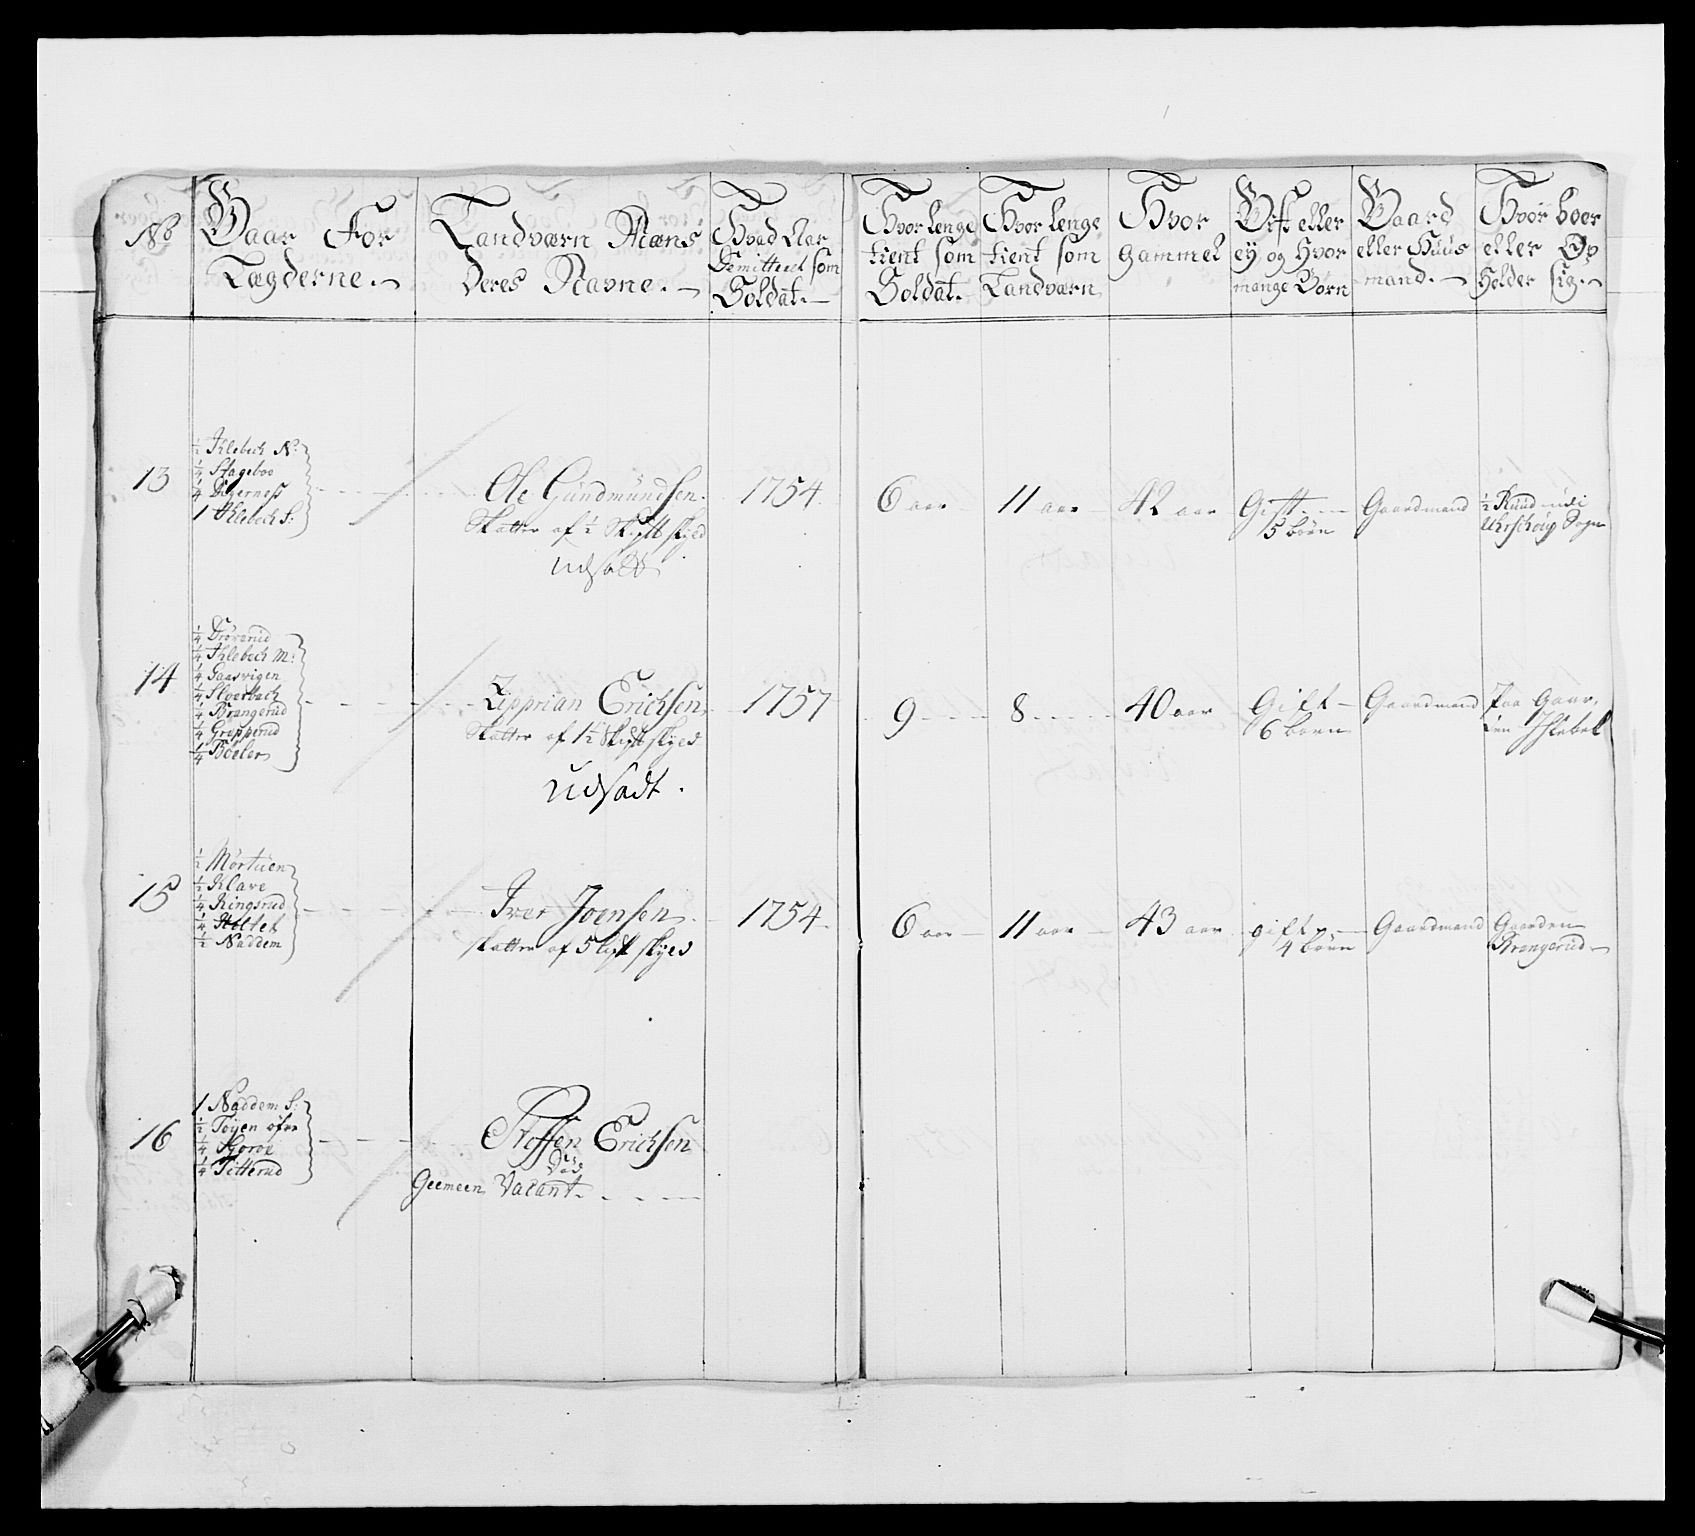 No
Gaar For
Lægderne.
Landværn Mæns
Deres Navne.
Hvad Aar
Demitteret som
Soldat.
Hvor lenge
tient som
Soldat.
Hvor lenge
tient som
Landværn
Hvor
gammel
Gift eller
ey og Hvor
mange Børn
Gaard
eller Huus
mand.
Hvor boer
eller Op
holder sig.
13
1/2 Klebech N:
1/4 Stageboe
1/4 Digerness
1 Klebech S:
Ole Gundmundsen
Skatter af 1/2 Skylt skyld
udsadt
1754
6 aar
11 aar
42 aar
Gift
5 børn
Gaardmand
1/2 Ruud udi
Sogn
14
1/4 Drøverud
1/4 Klebech M:
1/4 Gaasvigen
1/4 Sloerbach
1/4 Brangerud
1/4 Gropperud
1/4 Bøeler
Zipprian Erichsen
Skatter af 1 1/2 Skylt skyld
udsadt.
1757
9
8
40 aar
Gift
6 børn
Gaardmand
Paa Gaar,
15
1/2 Mørtuen
1/2 Klave
1/4 Ringsrud
1/4 Holtet
1/2 Naddem
Iver Joensen
skatter af 5 skyld
1754
6 aar
11 aar
43 aar
gift
4 børn
Gaardmand
Gaarden
Brangerud
16
1 Naddem S:
1/2 Tøyen øfre
1/4
1/4 Titterud
Steffen Erichsen
Død
Geemeen Vacant.